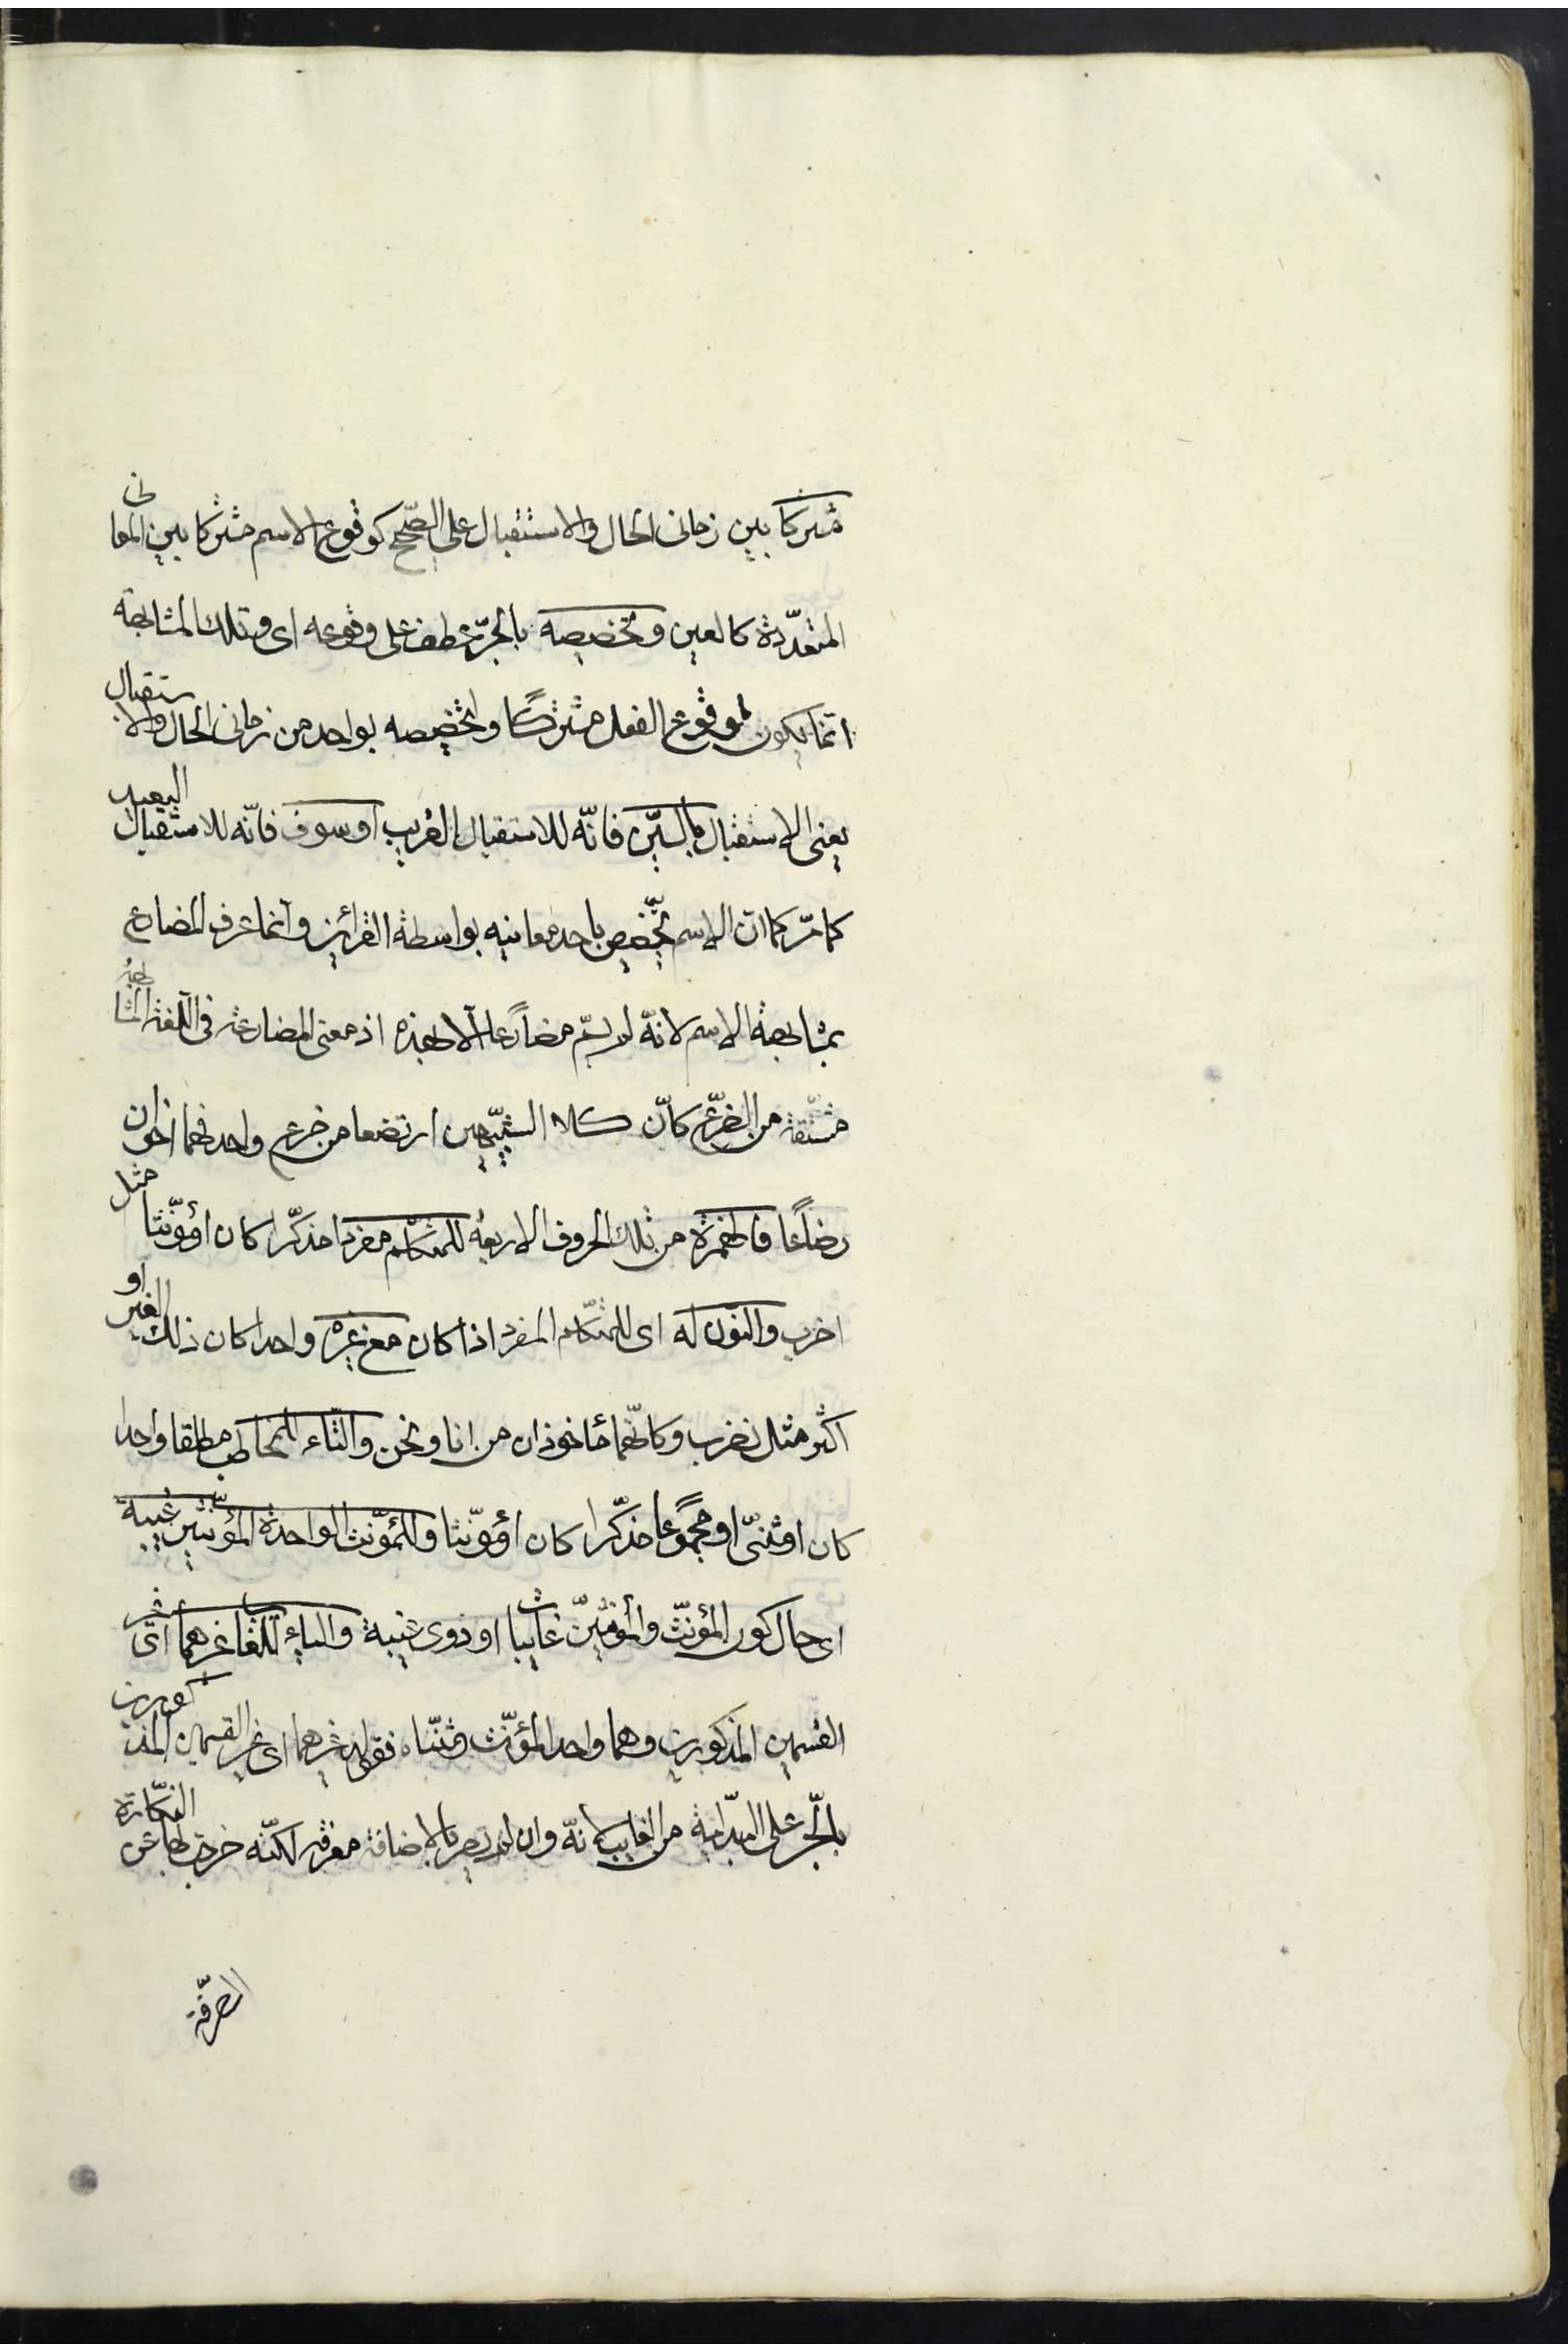 مشتركا بين زمانى الحال والاستقبال على الصّحيح كوقوع الاسم مشتركا بين المعانى
المتعدّدة كالعين وتخصيصه بالجرّ عطف على وقوعه اى وتلك المشابهة
انّما يكون لوقوع الفعل مشتركًا وتخصيصه بواحد من زمانى الحال والاستقبال
يعنى الاستقبال بالسّين فانّه للاستقبال القريب او سوف فانّه للاستقبال البعيد
كما مرّ كما انّ الاسم يخّصص باحد معانيه بواسطة القرائن وانما عرف المضارع
بمشابهة الاسم لانّه لم يسمّ مضارعا الّا لهذه اذ معنى المضارعة فى اللّغة المشابهة
مشتّقة من الضّرع كانّ كلا الشّبيهين ارتضعا من ضرع واحد فهما اخوان
رضاعًا فالهمزة من تلك الحروف الاربعة للمتكلّم مفردا مذكّرا كان او مؤنّثا مثل
اضرب والنّون له اى للمتكلّم المفرد اذا كان مع غيره واحدا كان ذلك الغير او
اكثر مثل نضرب وكانّهما مأخوذان من انا ونحن والتّاء للمخاطب مطلقا واحدا
كان او مثنّى او مجموعًا مذكّرا كان او مؤنّثا وللمؤنّث الواحدة المؤنّثين غيبة
اى حال كون المؤنّث والمؤنّثين غايبا او ذوى غيبة والياء للغايب غيرهما اى غير
القسمين المذكورين وهما واحد المؤنّث ومثنّاه فقوله غيرهما اى غير القسمين المذكورين
بالجّر على البدّلية من الغايب لانّه وان لم يصر بالاضافة معرفة لكنّه خرج بها عن النكّارة
الصرفة